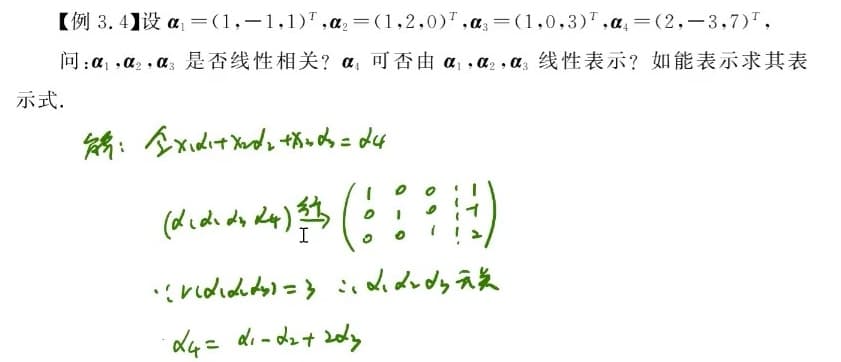 【例 3.4】设 α₁=(1,-1,1)ᵀ,α₂=(1,2,0)ᵀ,α₃=(1,0,3)ᵀ,α₄=(2,-3,7)ᵀ,
问:α₁,α₂,α₃ 是否线性相关? α₄ 可否由 α₁,α₂,α₃ 线性表示? 如能表示求其表
示式.
解: 令x₁α₁+x₂α₂+x₃α₃=α₄
(α₁α₂α₃α₄) 行→ ( 1 0 0 ⋮ 1
0 1 0 ⋮ -1
0 0 1 ⋮ 2 )
∵ r(α₁α₂α₃)=3 ∴ α₁α₂α₃无关
α₄= α₁-α₂+2α₃